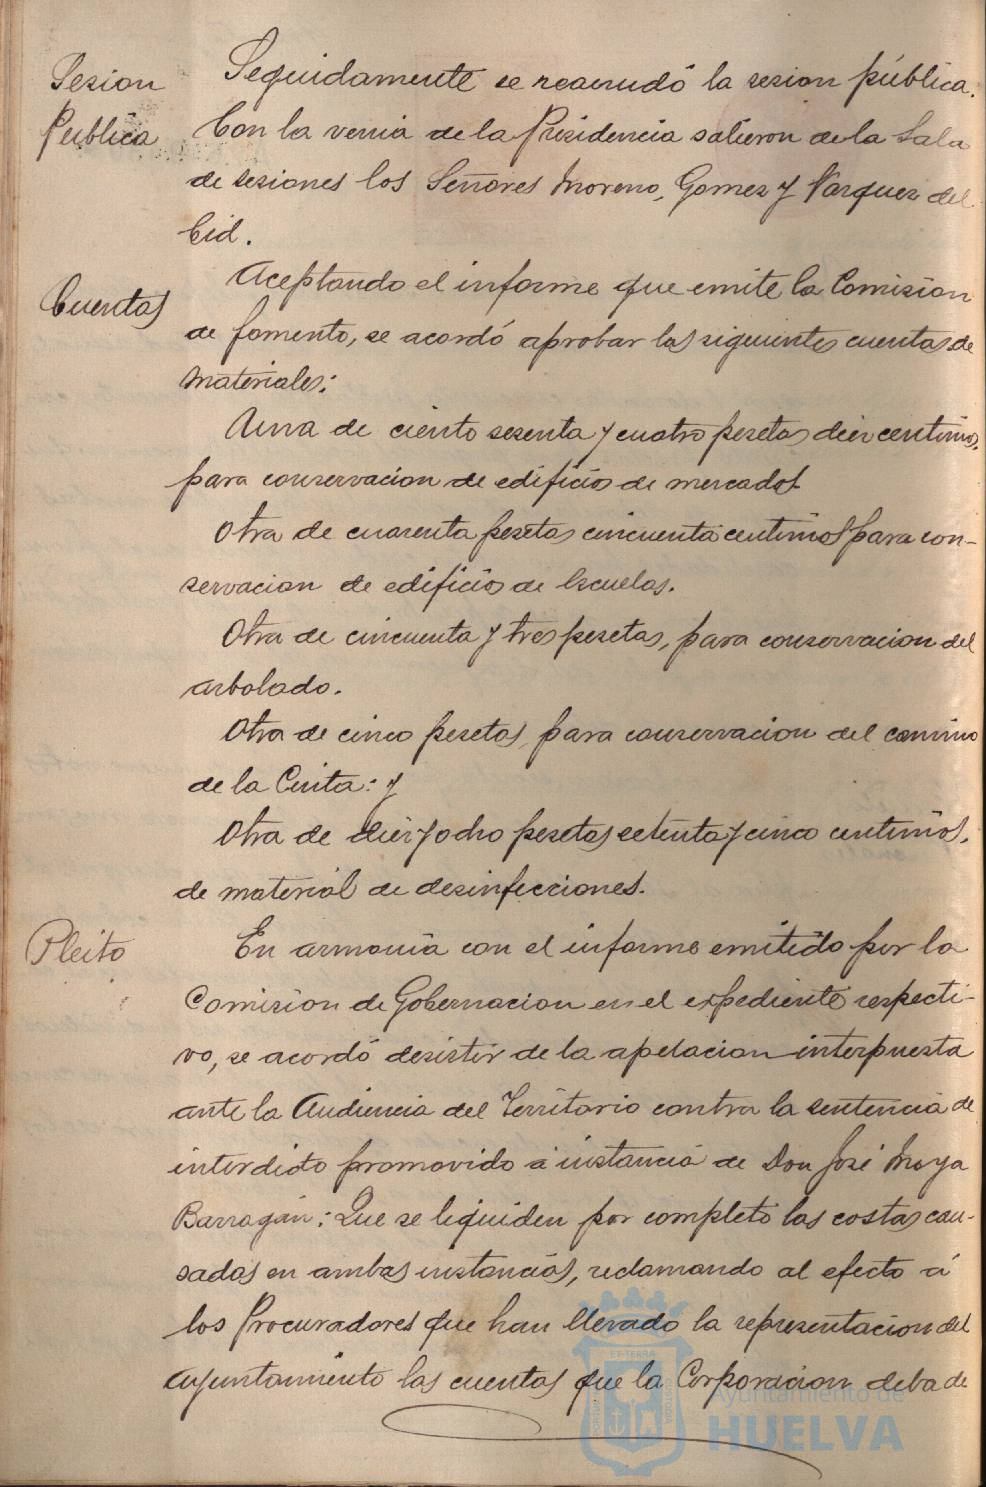 Sesion
Publica
Seguidamente se reanudó la sesion pública.
Con la venia de la Presidencia salieron de la Sala
de sesiones los Señores Moreno, Gomez y Vazquez del
Cid.
Cuentas
Aceptando el informe que emite la Comision
de fomento, se acordó aprobar las siguientes cuentas de
materiales:
Una de ciento sesenta y cuatro pesetas diez centimos,
para conservacion de edificios de mercados.
Otra de cuarenta pesetas cincuenta centimos para con-
servacion de edificios de Escuelas.
Otra de cincuenta y tres pesetas, para conservacion del
arbolado.
Otra de cinco pesetas, para conservacion del camino
de la Cinta: y
Otra de diez y ocho pesetas setenta y cinco centimos,
de material de desinfecciones.
Pleito
En armonía con el informe emitido por la
Comision de Gobernacion en el expediente respecti-
vo, se acordó desistir de la apelacion interpuesta
ante la Audiencia del Territorio contra la sentencia de
interdicto promovido á instancia de Don José Moya
Barragán: Que se liquiden por completo las costas cau-
sadas en ambas instancias, reclamando al efecto á
los Procuradores que han llevado la representacion del
Ayuntamiento las cuentas que la Corporacion deba de
Ayuntamiento de
HUELVA